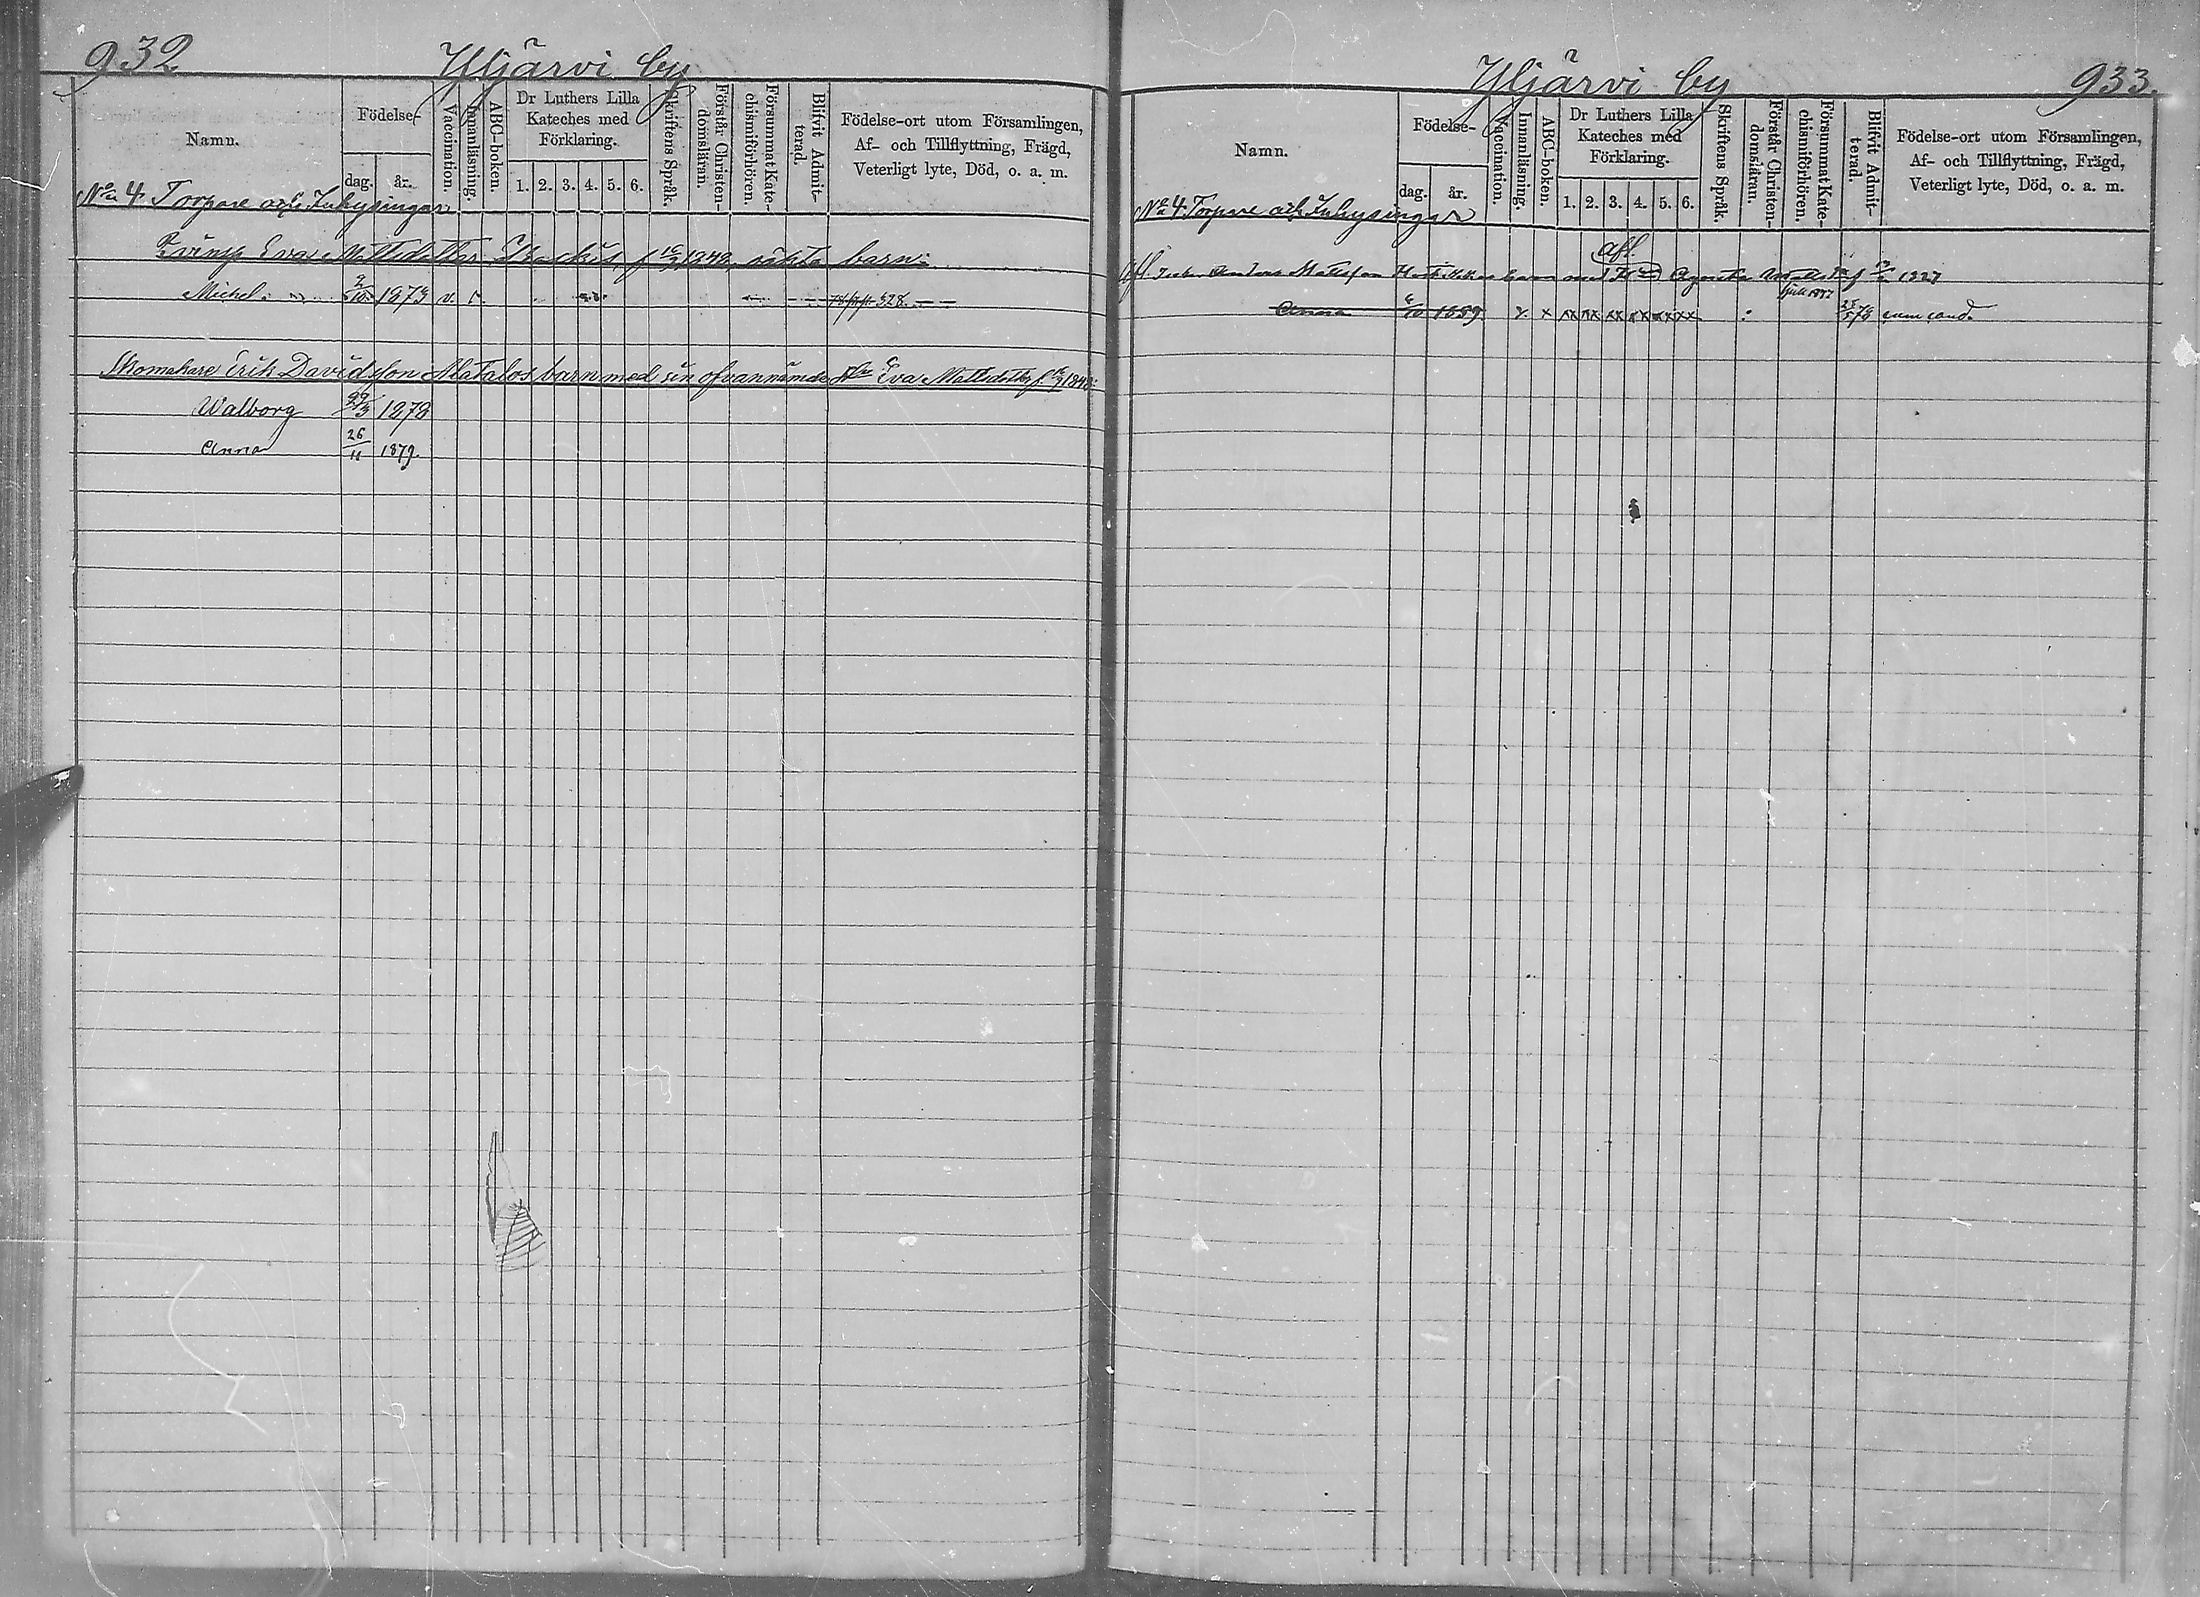 932
Yljärvi by
Namn.
Födelse-
dag.
år.
Vaccination.
Innanläsning.
ABC-boken.
Dr Luthers Lilla
Kateches med
Förklaring.
1. 2. 3. 4. 5. 6.
Skriftens Språk.
Förstår Christen-
domsläran.
Försummat Kate-
chismiförhören.
Blifvit Admit-
terad.
Födelse-ort utom Församlingen,
Af- och Tillflyttning, Frägd,
Veterligt lyte, Död, o. a. m.
No 4. Torpare och Inhysingar
Eva Mattsdotter f 1848 oäkta barn:
Michel 2/10 1873 v. 528
Skomakare Erik Davidsson Alatalos barn med sin ofvannämde Eva Mattsdotter f. 1848:
Walborg 1878
Anna 26/11 1879.
Yljärvi by
933.
Namn.
Födelse-
dag.
år.
Vaccination.
Innanläsning.
ABC-boken.
Dr Luthers Lilla
Kateches med
Förklaring.
1. 2. 3. 4. 5. 6.
Skriftens Språk.
Förstår Christen-
domsläran.
Försummat Kate-
chismiförhören.
Blifvit Admit-
terad.
Födelse-ort utom Församlingen,
Af- och Tillflyttning, Frägd,
Veterligt lyte, Död, o. a. m.
No 4. Torpare och Inhysingar
afl.
Afl. Anders Mattsson barn med Agneta f 1827
Anna 6/10 1859 x xx xx xx xx xx xx